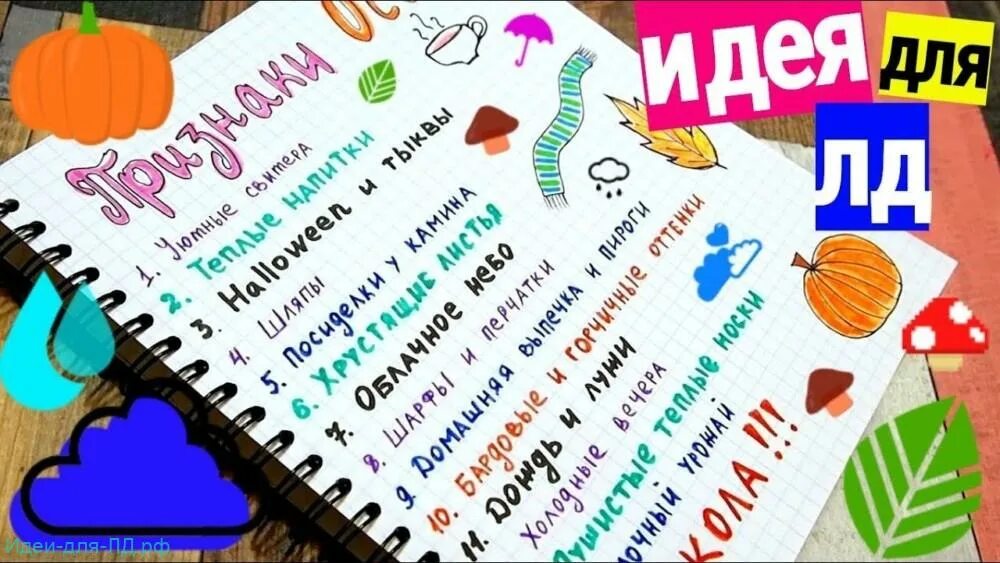 Признаки
1. Уютные свитера
2. Теплые напитки
3. Halloween и тыквы
4. Шляпы
5. Посиделки у камина
6. Хрустящие листья
7. Облачное небо
8. Шарфы и перчатки
9. Домашняя выпечка и пироги
10. Бардовые и горчичные оттенки
11. Дождь и лужи
Холодные вечера
ушистые теплые носки
лочный урожай
КОЛА!!!
идея
для
ЛД
Идеи-для-ЛД.рф